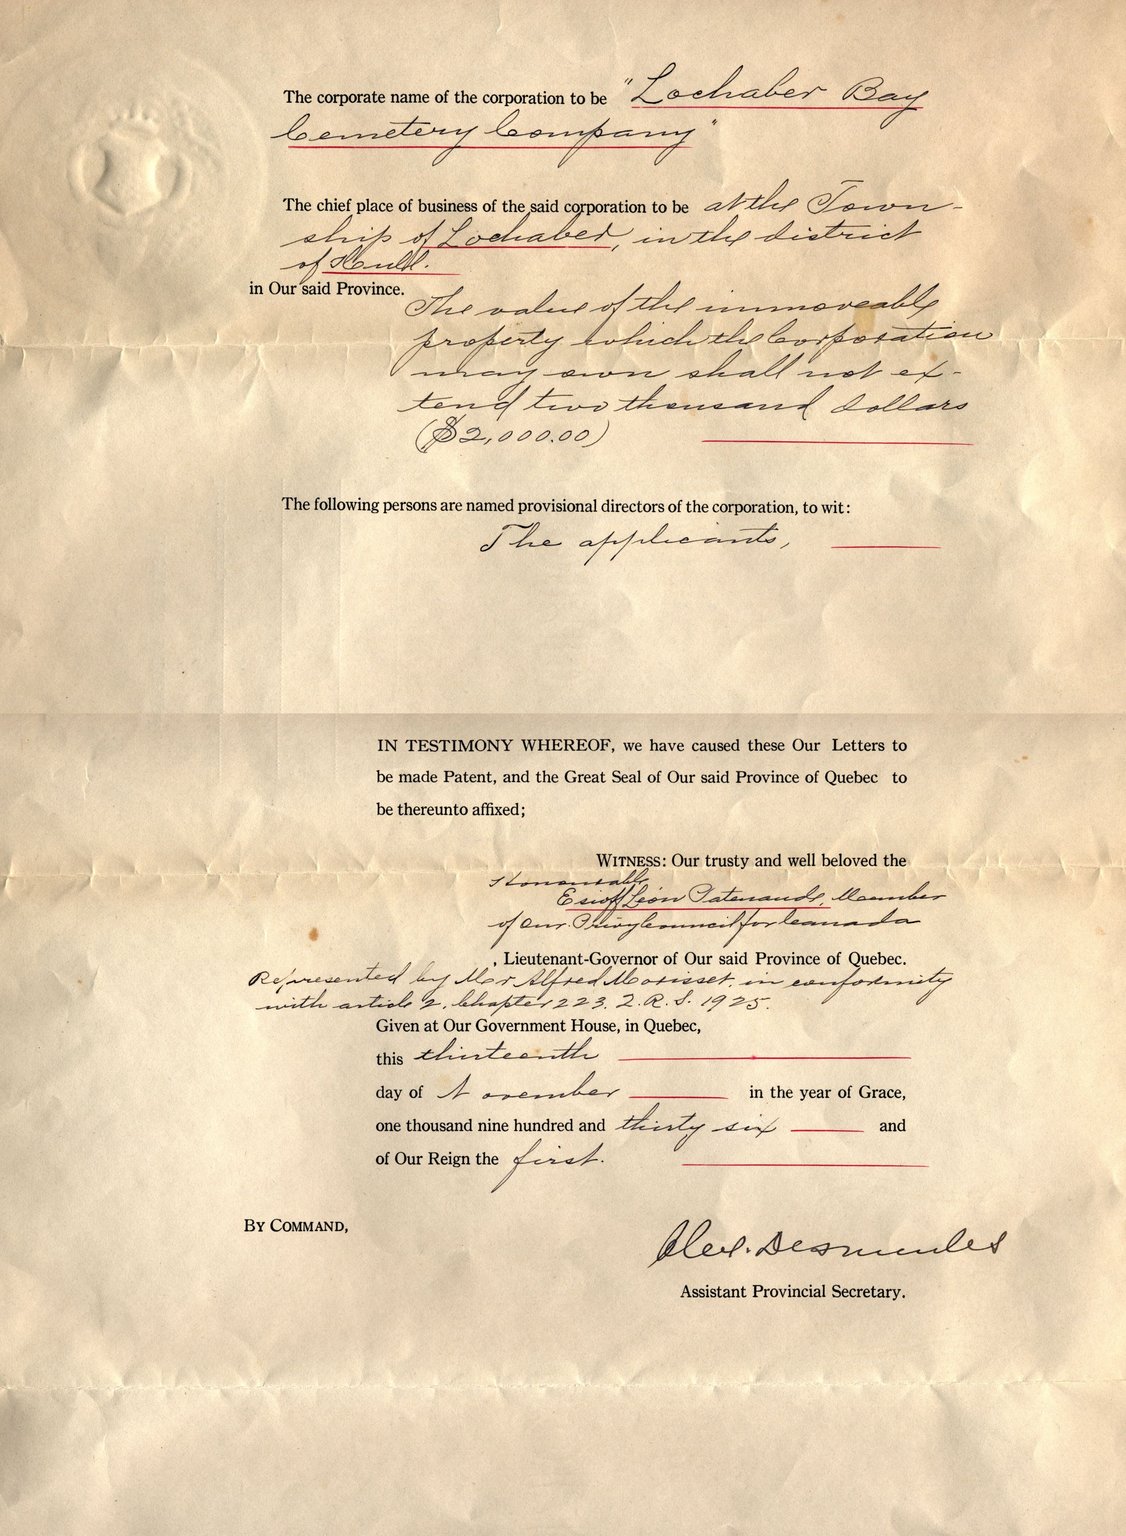 The corporate name of the corporation to be "Lochaber Bay
Cemetery Company"
The chief place of business of the said corporation to be at the Town-
ship of Lochaber, in the district
of Hull.
in Our said Province.
The value of the immoveable
property which the Corporation
may own shall not ex-
tend two thousand dollars
($2,000.00)
The following persons are named provisional directors of the corporation, to wit:
The applicants,
IN TESTIMONY WHEREOF, we have caused these Our Letters to
be made Patent, and the Great Seal of Our said Province of Quebec to
be thereunto affixed;
WITNESS: Our trusty and well beloved the
Honourable
Esioff Léon Patenaude, Member
of Our Privy Council for Canada
, Lieutenant-Governor of Our said Province of Quebec.
Represented by Mr Alfred Morisset, in conformity
with article 2, Chapter 223, 2. R. S. 1925.
Given at Our Government House, in Quebec,
this thirteenth
day of November in the year of Grace,
one thousand nine hundred and thirty six and
of Our Reign the first.
BY COMMAND,
Alex. Desmeules
Assistant Provincial Secretary.